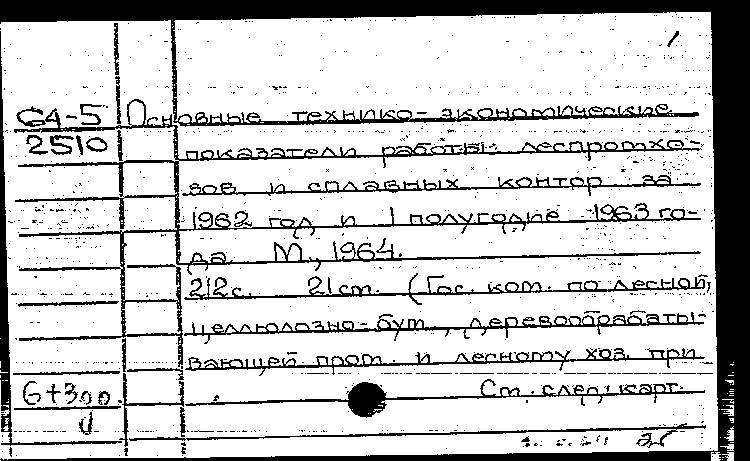 1
С4-5 Основные технико-экономические
2510 показатели работы леспромхо-
зов и сплавных контор за
1962 год и 1 полугодие 1963 го-
да. М., 1964.
212с. 21см. (Гос. ком. по лесной,
целлюлозно-бум., деревообрабаты-
вающей пром. и лесному хоз. при
См. след. карт.